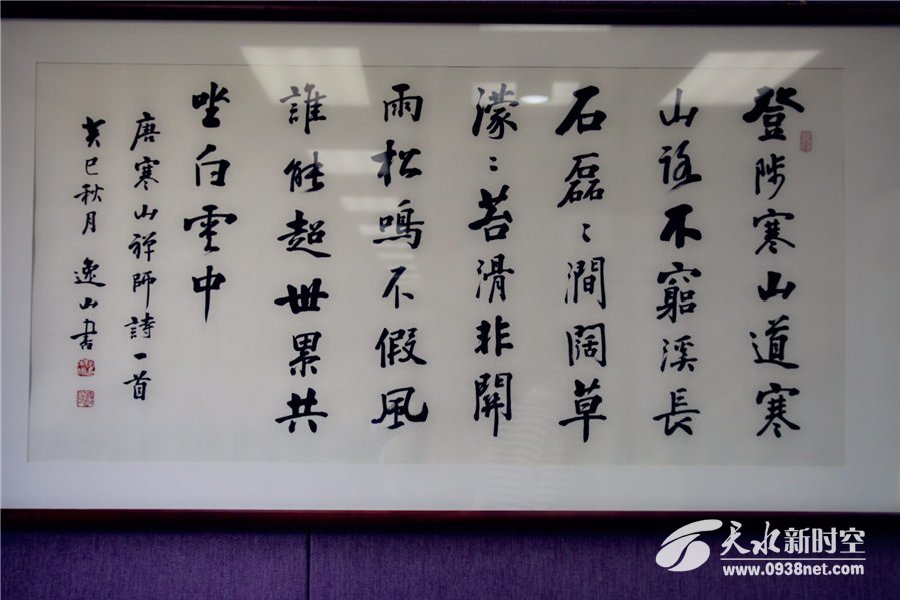 登陟寒山道寒
山路不窮溪長
石磊〻澗闊草
濛〻苔滑非關
雨松鳴不假風
誰能超世累共
坐白雲中
唐寒山禅師詩一首
癸巳秋月 逸山書
天水新时空
www.0938net.com